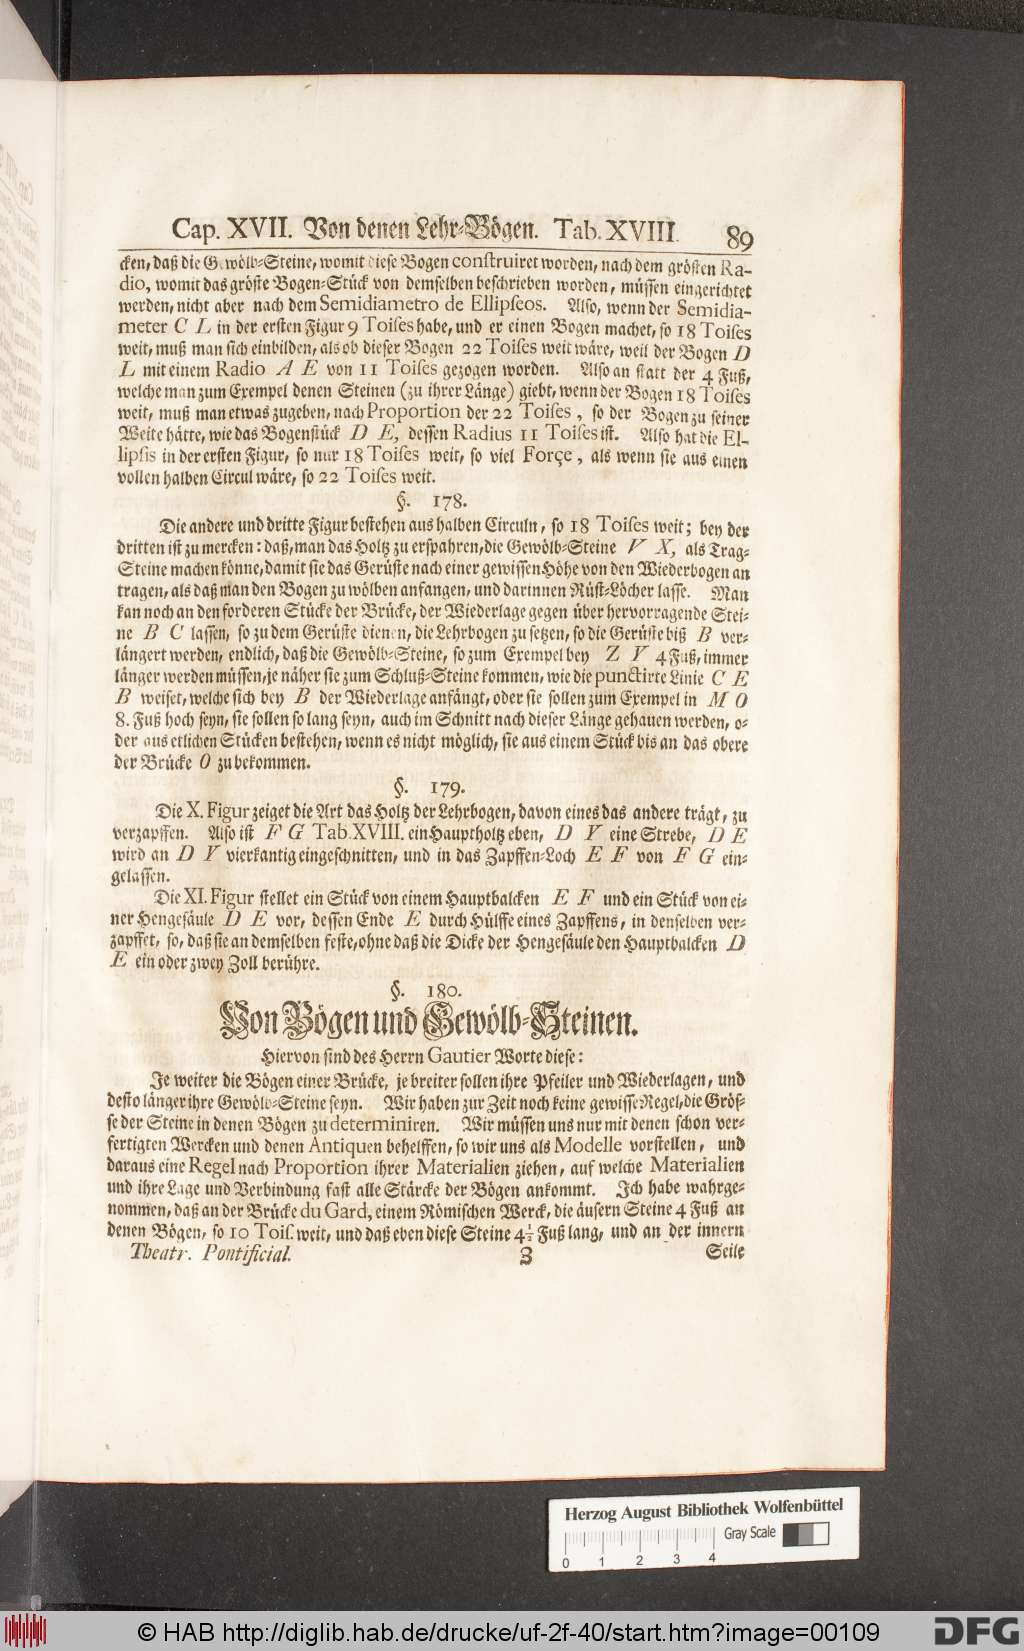 Cap. XVII. Von denen Lehr-Bögen. Tab. XVIII. 89
cken, daß die Gewölb-Steine, womit diese Bogen construiret worden, nach dem grösten Ra-
dio, womit das gröste Bogen-Stück von demselben beschrieben worden, müssen eingerichtet
werden, nicht aber nach dem Semidiametro de Ellipseos. Also, wenn der Semidia-
meter C L in der ersten Figur 9 Toises habe, und er einen Bogen machet, so 18 Toises
weit, muß man sich einbilden, als ob dieser Bogen 22 Toises weit wäre, weil der Bogen D
L mit einem Radio A E von 11 Toises gezogen worden. Also an statt der 4 Fuß,
welche man zum Exempel denen Steinen (zu ihrer Länge) giebt, wenn der Bogen 18 Toises
weit, muß man etwas zugeben, nach Proportion der 22 Toises, so der Bogen zu seiner
Weite hätte, wie das Bogenstück D E, dessen Radius 11 Toises ist. Also hat die El-
lipsis in der ersten Figur, so nur 18 Toises weit, so viel Forçe, als wenn sie aus einen
vollen halben Circul wäre, so 22 Toises weit.
§. 178.
Die andere und dritte Figur bestehen aus halben Circuln, so 18 Toises weit; bey der
dritten ist zu mercken: daß, man das Holtz zu erspahren, die Gewölb-Steine V X, als Trag-
Steine machen könne, damit sie das Gerüste nach einer gewissen Höhe von den Wiederbogen an
tragen, als daß man den Bogen zu wölben anfangen, und darinnen Rüst-Löcher lasse. Man
kan noch an den forderen Stücke der Brücke, der Wiederlage gegen über hervorragende Stei-
ne B C lassen, so zu dem Gerüste dienen, die Lehrbogen zu setzen, so die Gerüste biß B ver-
längert werden, endlich, daß die Gewölb-Steine, so zum Exempel bey Z Y 4 Fuß, immer
länger werden müssen, je näher sie zum Schluß-Steine kommen, wie die punctirte Linie C E
B weiset, welche sich bey B der Wiederlage anfängt, oder sie sollen zum Exempel in M O
8. Fuß hoch seyn, sie sollen so lang seyn, auch im Schnitt nach dieser Länge gehauen werden, o-
der aus etlichen Stücken bestehen, wenn es nicht möglich, sie aus einem Stück bis an das obere
der Brücke O zu bekommen.
§. 179.
Die X. Figur zeiget die Art das Holtz der Lehrbogen, davon eines das andere trägt, zu
verzapffen. Also ist F G Tab. XVIII. ein Hauptholtz eben, D Y eine Strebe, D E
wird an D Y vierkantig eingeschnitten, und in das Zapffen-Loch E F von F G ein-
gelassen.
Die XI. Figur stellet ein Stück von einem Hauptbalcken E F und ein Stück von ei-
ner Hengesäule D E vor, dessen Ende E durch Hülffe eines Zapffens, in denselben ver-
zapffet, so, daß sie an demselben feste, ohne daß die Dicke der Hengesäule den Hauptbalcken D
E ein oder zwey Zoll berühre.
§. 180.
Von Bögen und Gewölb-Steinen.
Hiervon sind des Herrn Gautier Worte diese:
Je weiter die Bögen einer Brücke, je breiter sollen ihre Pfeiler und Wiederlagen, und
desto länger ihre Gewölb-Steine seyn. Wir haben zur Zeit noch keine gewisse Regel, die Grös-
se der Steine in denen Bögen zu determiniren. Wir müssen uns nur mit denen schon ver-
fertigten Wercken und denen Antiquen behelffen, so wir uns als Modelle vorstellen, und
daraus eine Regel nach Proportion ihrer Materialien ziehen, auf welche Materialien
und ihre Lage und Verbindung fast alle Stärcke der Bögen ankommt. Ich habe wahrge-
nommen, daß an der Brücke du Gard, einem Römischen Werck, die äusern Steine 4 Fuß an
denen Bögen, so 10 Tois. weit, und daß eben diese Steine 4½ Fuß lang, und an der innern
Theatr. Pontificial. Z Seite
Herzog August Bibliothek Wolfenbüttel
Gray Scale
0 1 2 3 4
© HAB http://diglib.hab.de/drucke/uf-2f-40/start.htm?image=00109
DFG